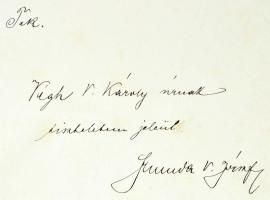 Tek.
Végh V. Károly úrnak
tiszteletem jeléül
V. József